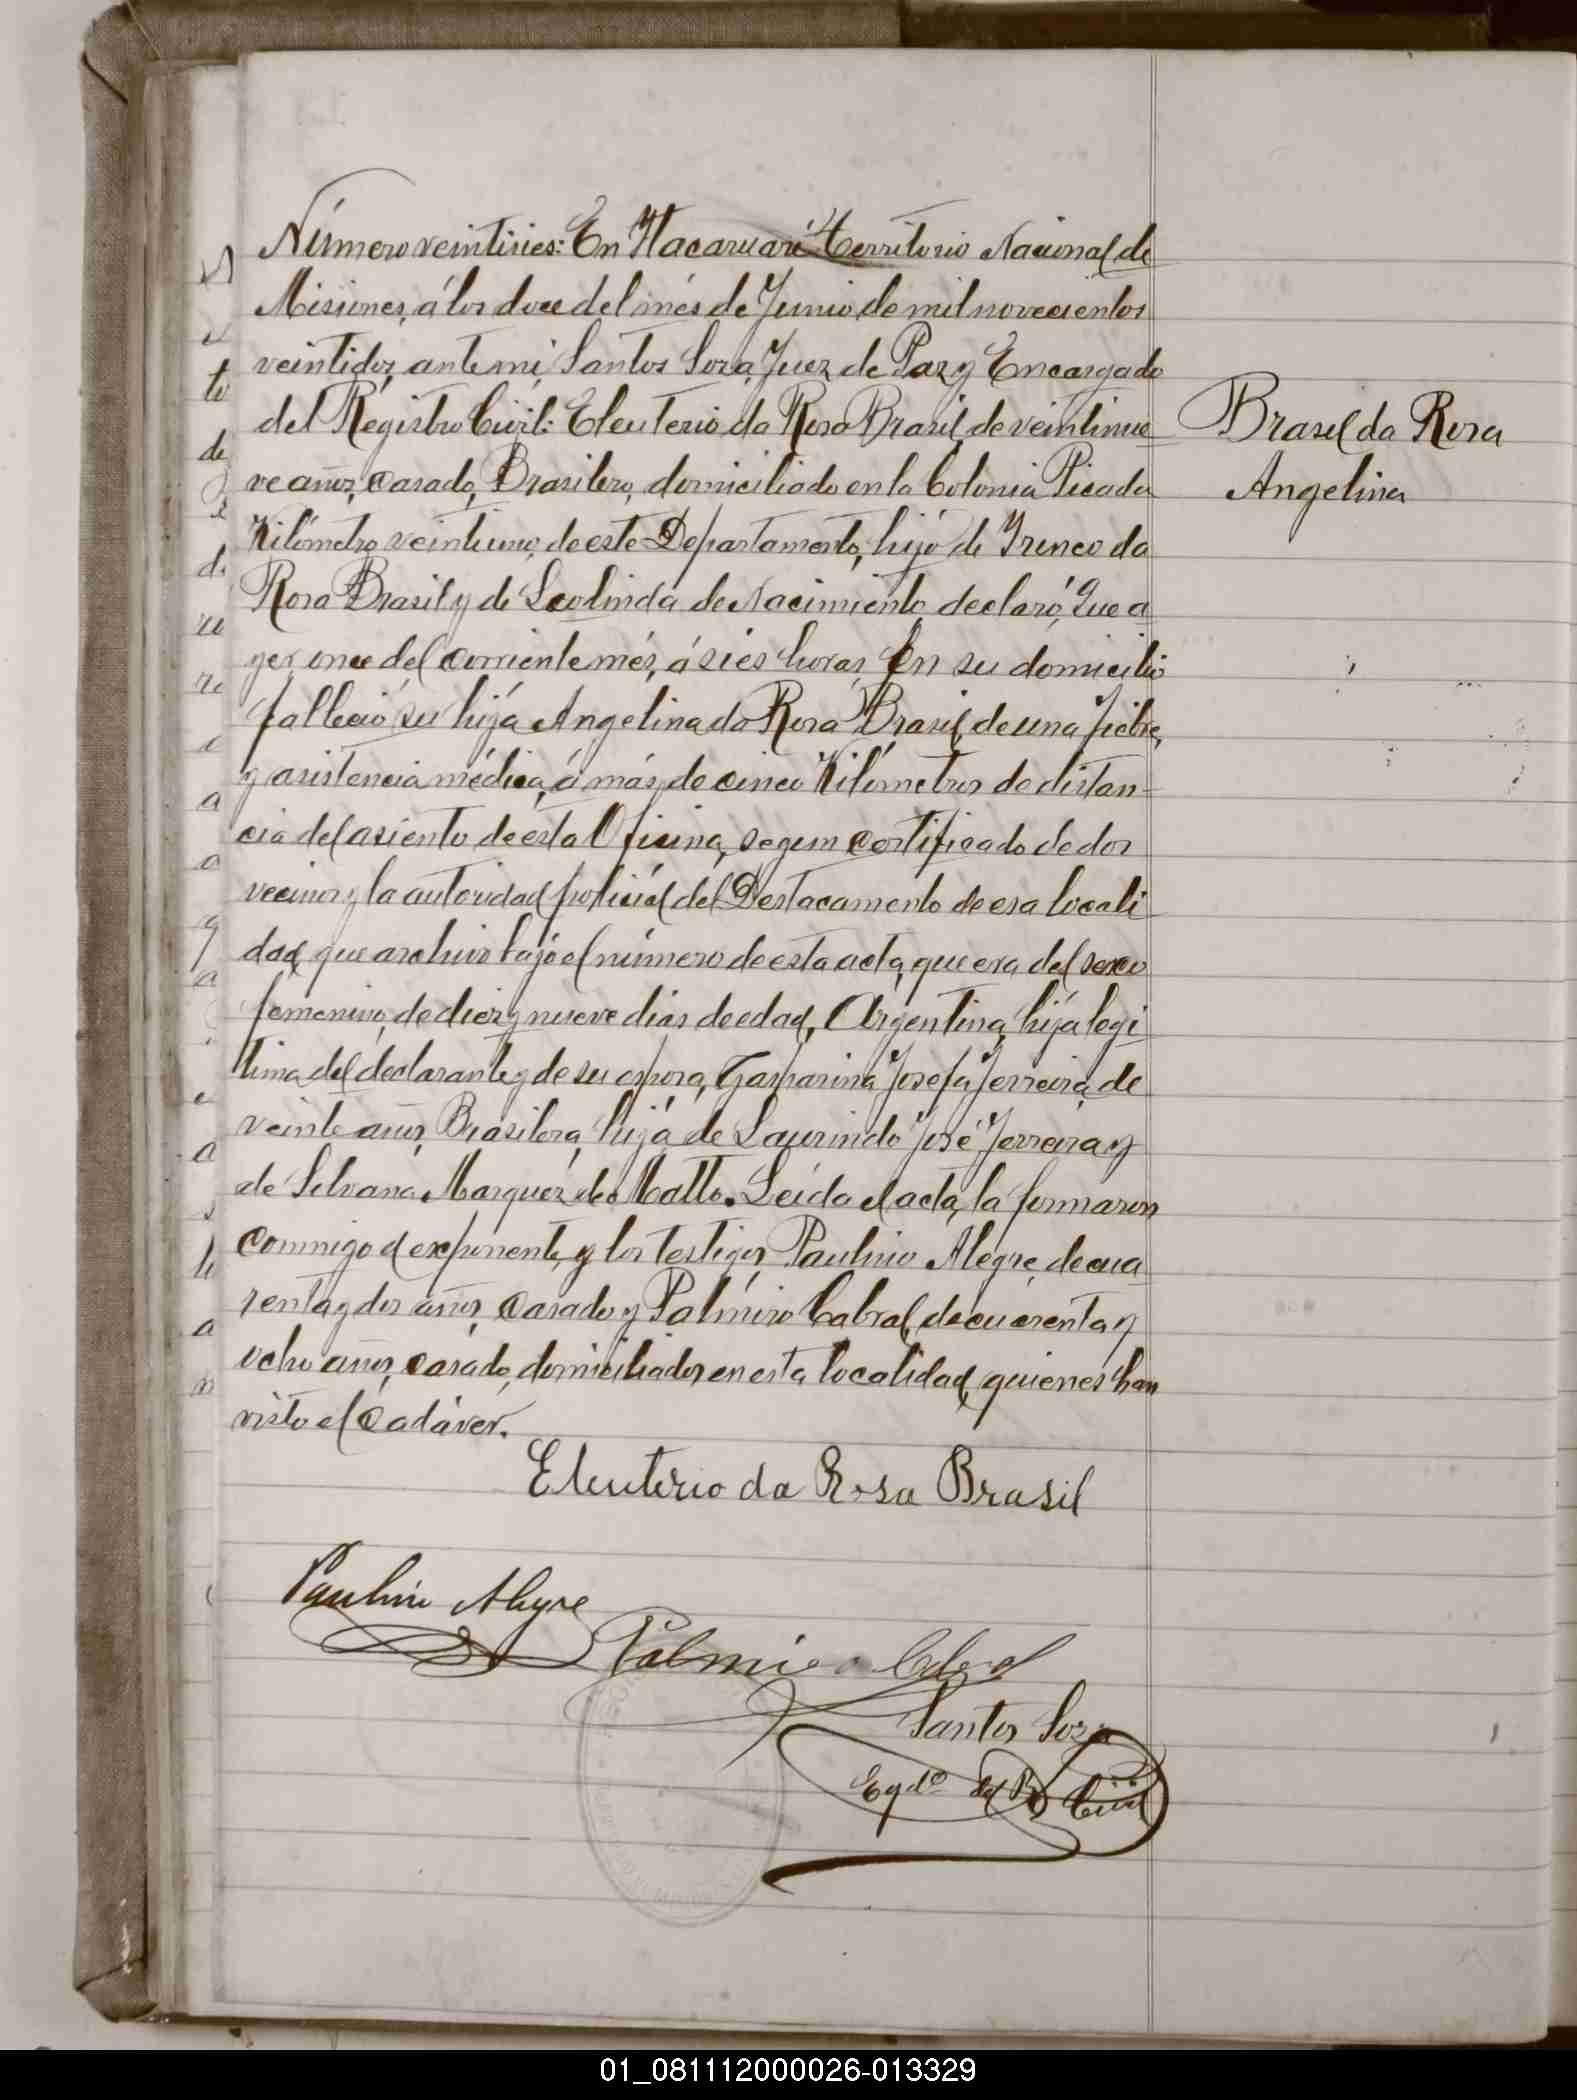 Número veintisies: En Itacaruaré Territorio Nacional de
Misiones, á los doce del més de Junio de mil novecientos
veintidos, ante mi, Santos Sosa, Juez de Paz y Encargado
del Registro Civil: Eleuterio da Rosa Brasil de veintinue
ve años, casado, Brasilero, domiciliado en la Colonia Picada
Kilómetro veintiuno, de este Departamento, hijo de Irineo da
Rosa Brasil y de Leolinda de Nacimiento, declaró; Que a
yer once del corriente més, á sies horas, En su domicilio
falleció su hija Angelina da Rosa Brasil, de una fiebre,
y asistencia médica, á más de cinco Kilómetros de distan-
cia del asiento de esta Oficina, segun certificado de dos
vecinos y la autoridad policial del Destacamento de esa locali
dad, que archivo bajo el número de esta acta, que era del sexo
femenino, de diez y nueve dias de edad, Argentina, hija legi
tima del declarante y de su esposa, Gasparina Josefa Ferreira, de
veinte años, Brasilera, hija de Laurindo José Ferreira y
de Silvana Marquéz de Matto. Leida el acta, la firmaron
conmigo el exponente, y los testigos, Paulino Alegre, de cua
renta y dos años, casado y Palmiro Cabral, de cuarenta y
ocho años, casado, domiciliados en esta localidad, quienes han
visto el Cadáver.
Brasil da Rosa
Angelina
Eleuterio da Rosa Brasil
Paulino Alegre
Palmiro Cabral
Santos Sosa
Egdo del R. Civil
01_081112000026-013329